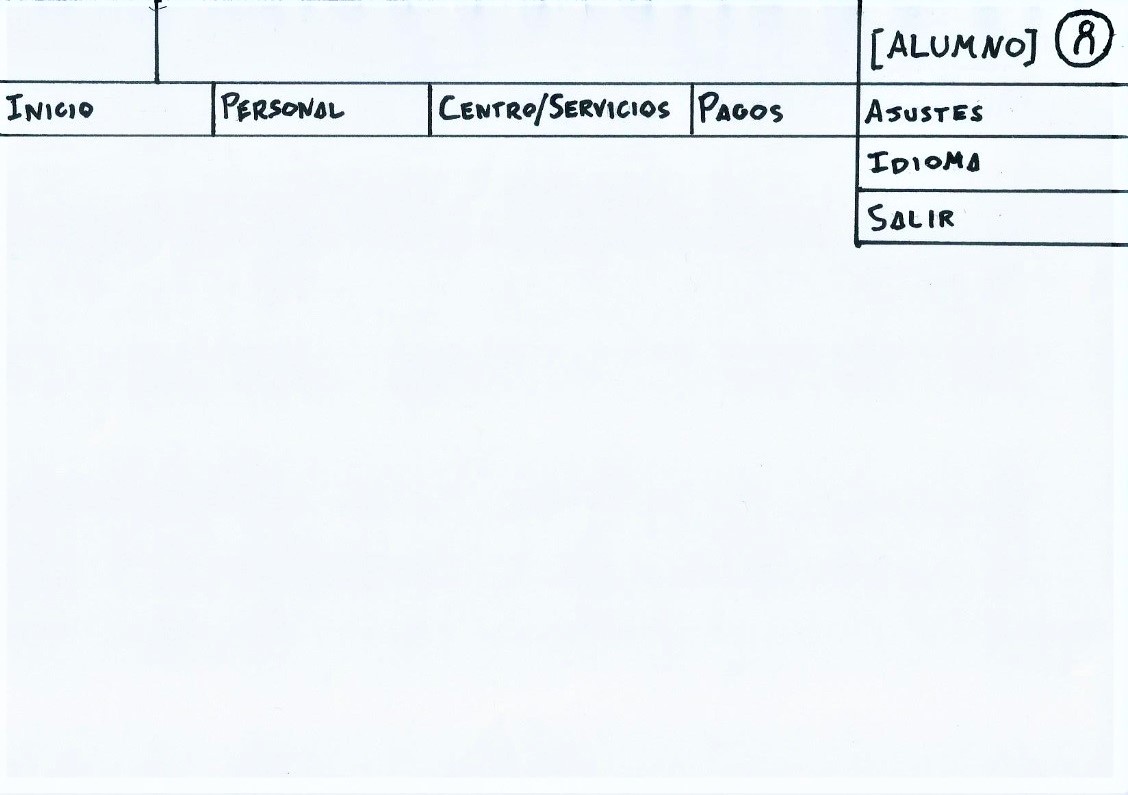 [ALUMNO]
INICIO PERSONAL CENTRO/SERVICIOS PAGOS AJUSTES
IDIOMA
SALIR